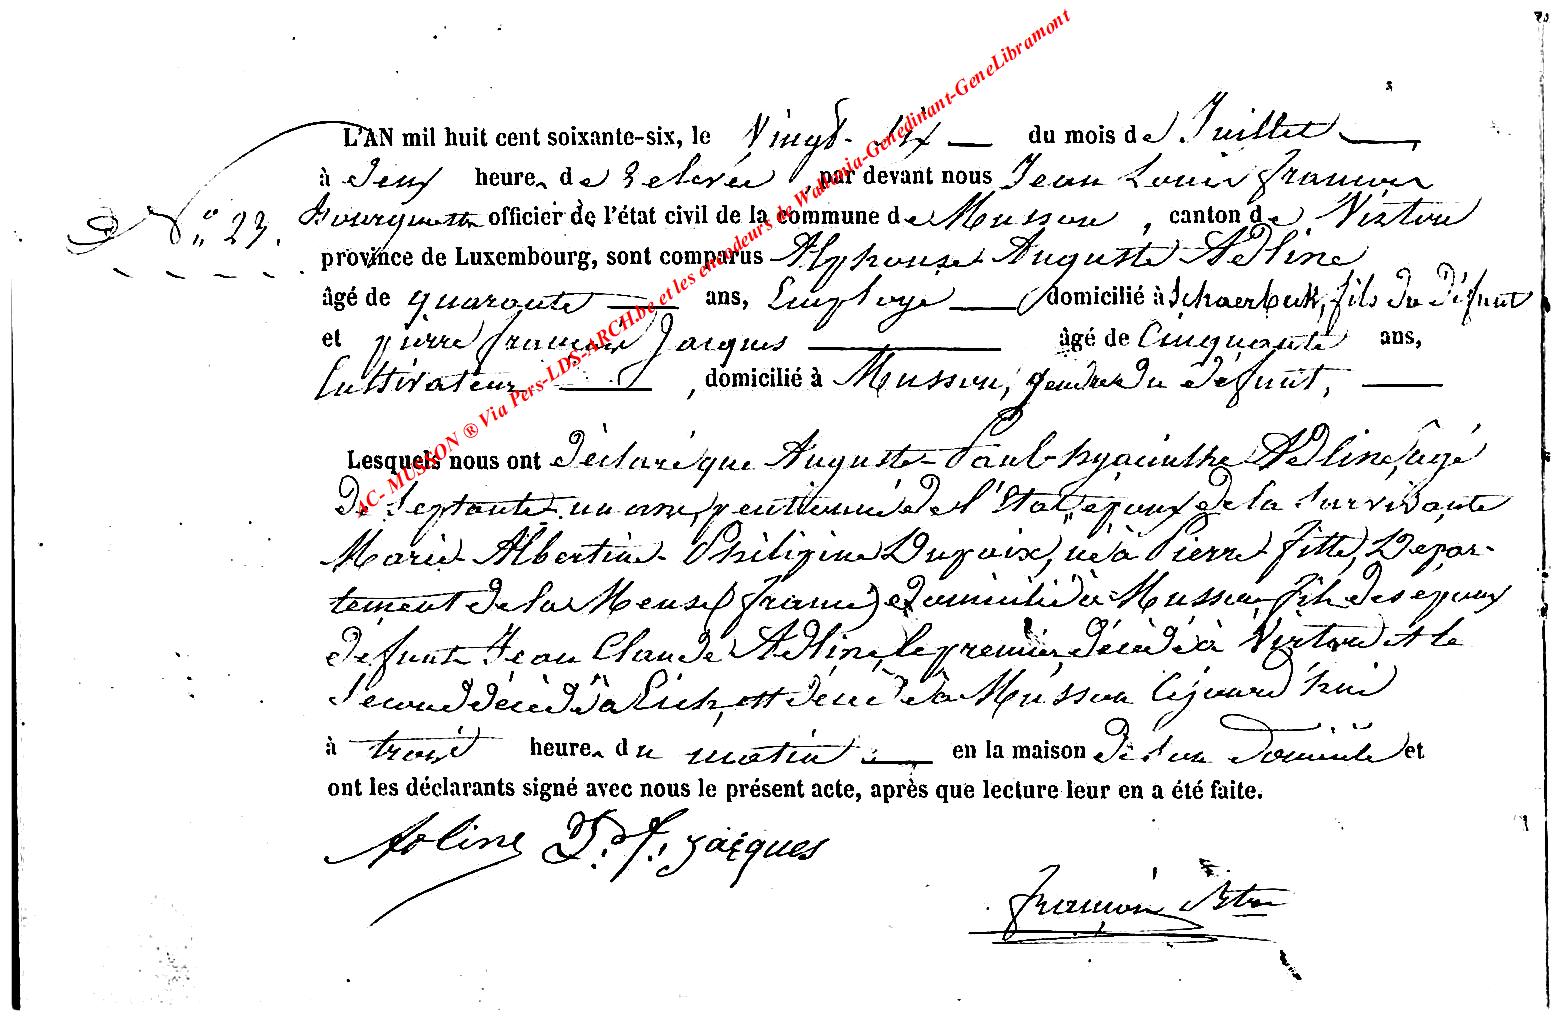 L'AN mil huit cent soixante-six, le Vingt-six du mois de Juillet
à deux heures de relevée, par devant nous Jean Louis François
N° 23. officier de l'état civil de la commune de Musson, canton de Virton
province de Luxembourg, sont comparus Alphonse Auguste Adline
âgé de quarante ans, Employé domicilié à Schaerbeek, fils du défunt
et pierre françois Jacques âgé de Cinquante ans,
Cultivateur, domicilié à Musson, gendre du défunt,
Lesquels nous ont déclaré que Auguste-Paul-hyacinthe Adline, âgé
de septante-un ans, pentionné de l'état, époux de la survivante
Marie-Albertine-Philipine Dupaix, né à Pierre-fitte, Dépar-
tement de la Meuse (france) et domicilié à Musson fils des époux
défunts Jean Claude Adline, le premier décédé à Virton et la
seconde décédée à Eich, est décédé à Musson Cejourd'hui
à trois heures du matin en la maison de son domicile et
ont les déclarants signé avec nous le présent acte, après que lecture leur en a été faite.
Adline P. f. jacques
françois
AC- MUSSON ® Via Pers-LDS-ARCH.be et les encodeurs de Wallonia-Genedinant-GeneLibramont